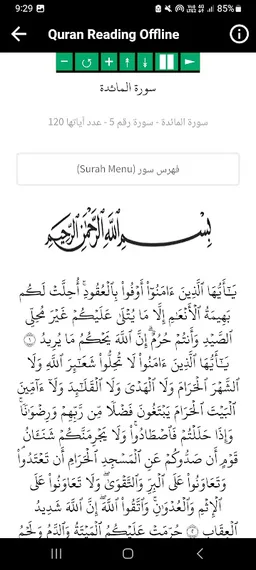 9:29
85%
Quran Reading Offline
سورة المائدة
سورة المائدة - سورة رقم 5 - عدد آياتها 120
فهرس سور (Surah Menu)
بِسْمِ اللَّهِ الرَّحْمَٰنِ الرَّحِيمِ
يَـٰٓأَيُّهَا ٱلَّذِينَ ءَامَنُوٓا۟ أَوْفُوا۟ بِٱلْعُقُودِ ۚ أُحِلَّتْ لَكُم
بَهِيمَةُ ٱلْأَنْعَـٰمِ إِلَّا مَا يُتْلَىٰ عَلَيْكُمْ غَيْرَ مُحِلِّى
ٱلصَّيْدِ وَأَنتُمْ حُرُمٌ ۗ إِنَّ ٱللَّهَ يَحْكُمُ مَا يُرِيدُ ١
يَـٰٓأَيُّهَا ٱلَّذِينَ ءَامَنُوا۟ لَا تُحِلُّوا۟ شَعَـٰٓئِرَ ٱللَّهِ وَلَا
ٱلشَّهْرَ ٱلْحَرَامَ وَلَا ٱلْهَدْىَ وَلَا ٱلْقَلَـٰٓئِدَ وَلَآ ءَآمِّينَ
ٱلْبَيْتَ ٱلْحَرَامَ يَبْتَغُونَ فَضْلًا مِّن رَّبِّهِمْ وَرِضْوَٰنًا ۚ
وَإِذَا حَلَلْتُمْ فَٱصْطَادُوا۟ ۚ وَلَا يَجْرِمَنَّكُمْ شَنَـَٔانُ
قَوْمٍ أَن صَدُّوكُمْ عَنِ ٱلْمَسْجِدِ ٱلْحَرَامِ أَن تَعْتَدُوا۟ ۘ
وَتَعَاوَنُوا۟ عَلَى ٱلْبِرِّ وَٱلتَّقْوَىٰ ۖ وَلَا تَعَاوَنُوا۟ عَلَى
ٱلْإِثْمِ وَٱلْعُدْوَٰنِ ۚ وَٱتَّقُوا۟ ٱللَّهَ ۖ إِنَّ ٱللَّهَ شَدِيدُ
ٱلْعِقَابِ ٢ حُرِّمَتْ عَلَيْكُمُ ٱلْمَيْتَةُ وَٱلدَّمُ وَلَحْمُ